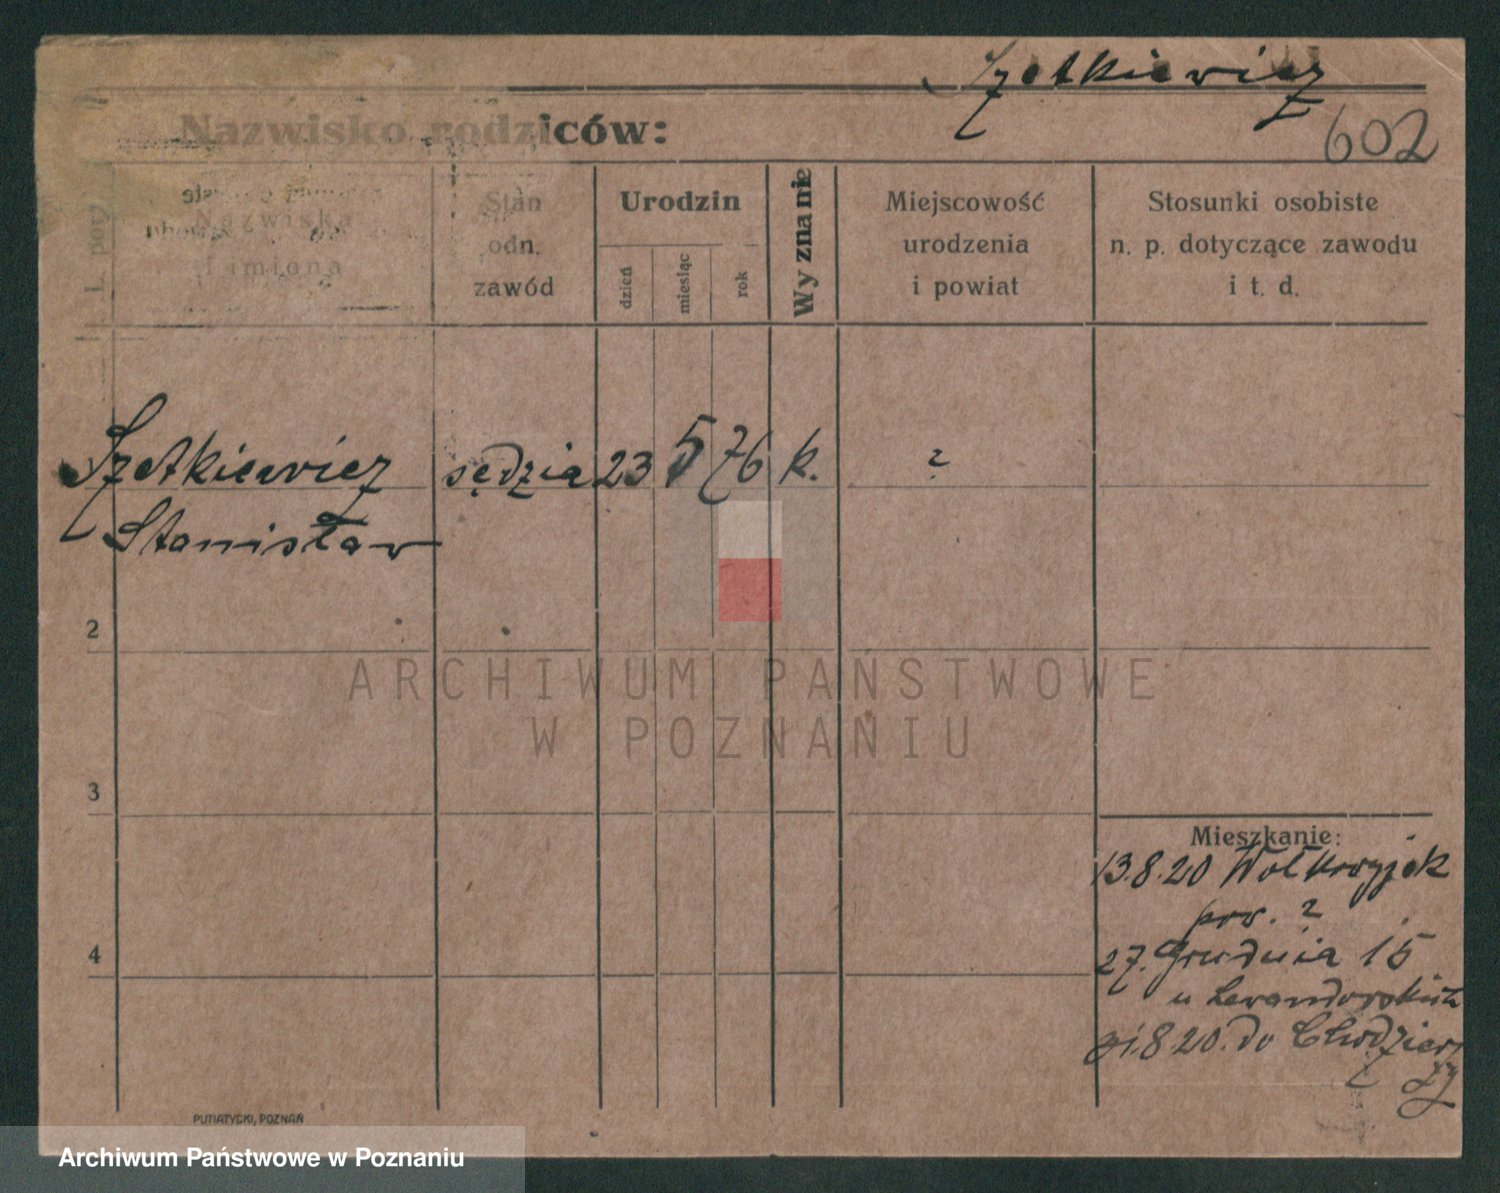 Szetkiewicz
Nazwisko rodziców:
602
l. poy
Nazwiska
i imiona
Stan
odn.
zawód
Urodzin
dzień
miesiąc
rok
Wyznanie
Miejscowość
urodzenia
i powiat
Stosunki osobiste
n. p. dotyczące zawodu
i t. d.
Szetkiewicz sędzia 23 5 76 k. ?
Stanisław
2
3
4
ARCHIWUM PAŃSTWOWE
W POZNANIU
Mieszkanie:
13.8.20 Wołkowyjsk
pow. ?
27. Grudnia 15
u Lewandowskich
8 20. do Chodzieży
PUTIATYCKI, POZNAŃ
Archiwum Państwowe w Poznaniu